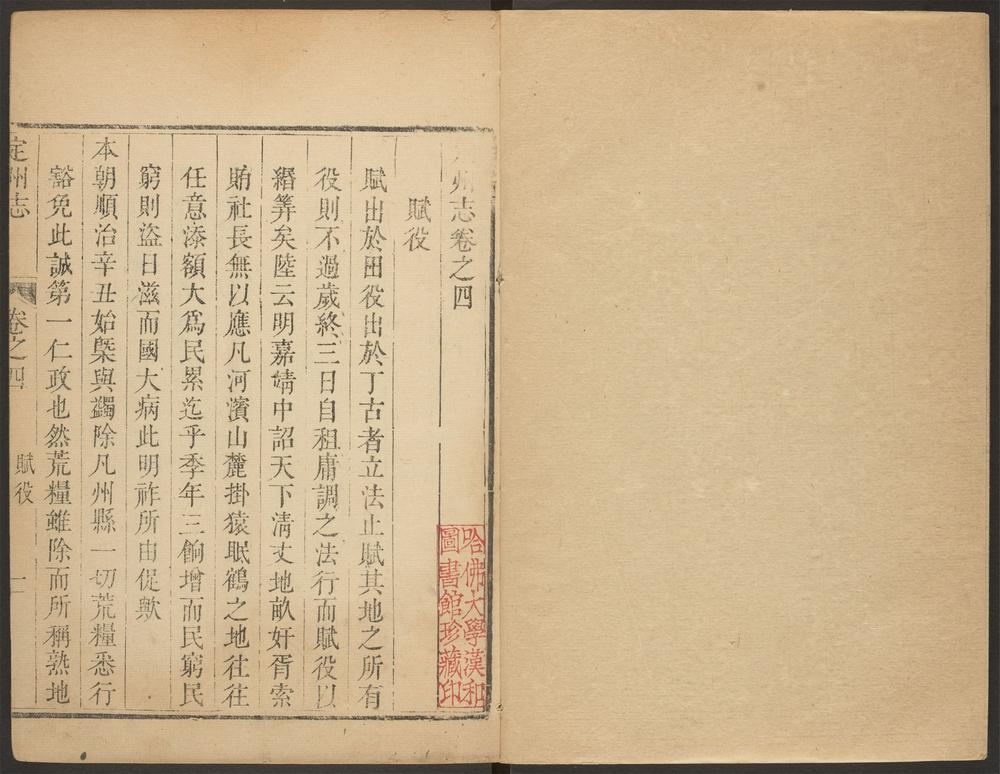 州志卷之四
賦役
賦出於田役出於丁古者立法止賦其地之所有
役則不過歲終三日自租庸調之法行而賦役以
緡筭矣陸云明嘉靖中詔天下清丈地畝奸胥索
賄社長無以應凡河濱山麓掛猿眠鶴之地往往
任意添額大為民累迄乎季年三餉增而民窮民
窮則盜日滋而國大病此明祚所由促歟
本朝順治辛丑始槩與蠲除凡州縣一切荒糧悉行
豁免此誠第一仁政也然荒糧雖除而所稱熟地
定州志 卷之四 賦役 一
哈佛大學漢和
圖書館珍藏印